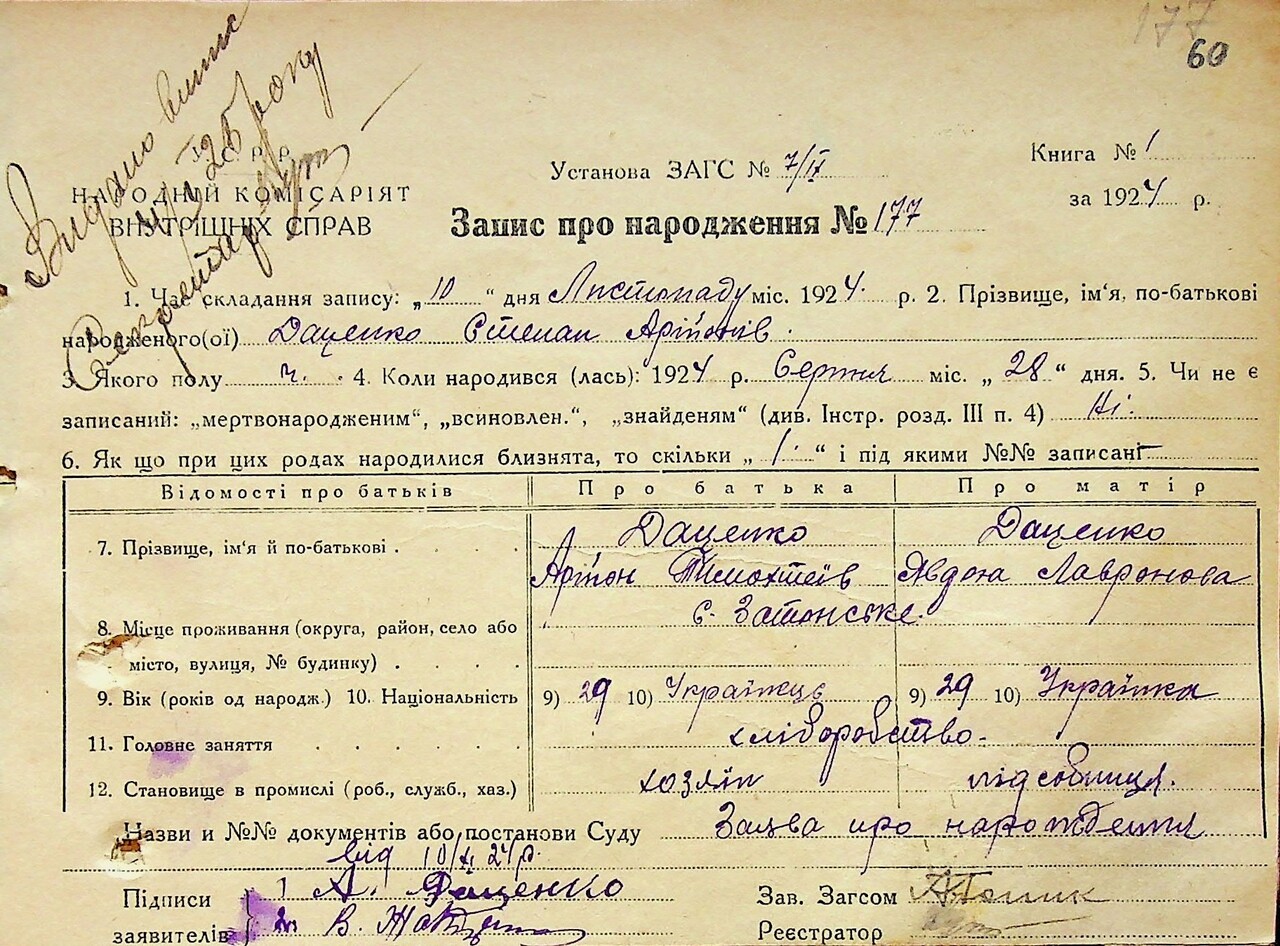 177
60
Видано випис
25 року
У. С. Р. Р.
НАРОДНІЙ КОМІСАРІЯТ
ВНУТРІШНІХ СПРАВ
Установа ЗАГС № 7/IX
Книга № 1
за 1924 р.
Запис про народження № 177
1. Час складання запису: „10“ дня Листопаду міс. 1924. р. 2. Прізвище, ім'я, по-батькові
народженого(ої) Даценко Степан
3. Якого полу ч. 4. Коли народився (лась): 1924 р. Серпня міс. „28“ дня. 5. Чи не є
записаний: „мертвонародженим“, „всиновлен.“, „знайденям“ (див. Інстр. розд. III п. 4) Ні.
6. Як що при цих родах народилися близнята, то скільки „1“ і під якими №№ записані —
Відомості про батьків Про батька Про матір
7. Прізвище, ім'я й по-батькові . . . . . Даценко Даценко
Тимохтеїв Явдоха Лавронова
с. Затонське.
8. Місце проживання (округа, район, село або
місто, вулиця, № будинку) . . . .
9. Вік (років од народж.) 10. Національність 9) 29 10) Українець 9) 29 10) Українка
11. Головне заняття . . . . . . хліборобство.
12. Становище в промислі (роб., служб., хаз.) хозяїн підсобниця.
Назви и №№ документів або постанови Суду Заява про народження
від 10/XI 24 р.
Підписи 1. А. Даценко
заявителів 2. В.
Зав. Загсом
Реєстратор